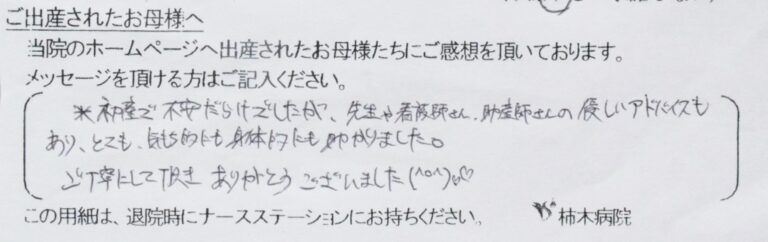 ご出産されたお母様へ
当院のホームページへ出産されたお母様たちにご感想を頂いております。
メッセージを頂ける方はご記入ください。
*初産で不安だらけでしたが、先生や看護師さん、助産師さんの優しいアドバイスも
あり、とても、気持ち的にも身体的にも助かりました。
ご丁寧にして頂き ありがとう ございました(^o^)♡
この用紙は、退院時にナースステーションにお持ちください。 柿木病院